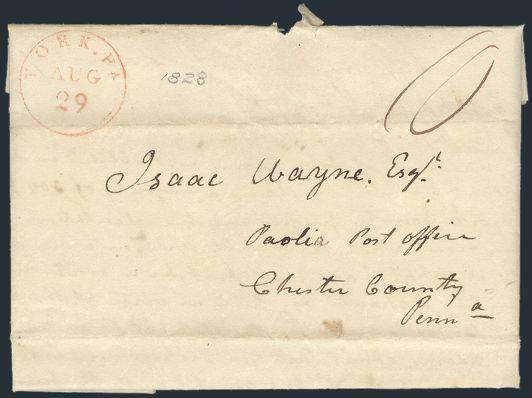 YORK. PA
AUG
29
1828
10
Isaac Wayne. Esqr.
Paolia Post office
Chester County
Penna